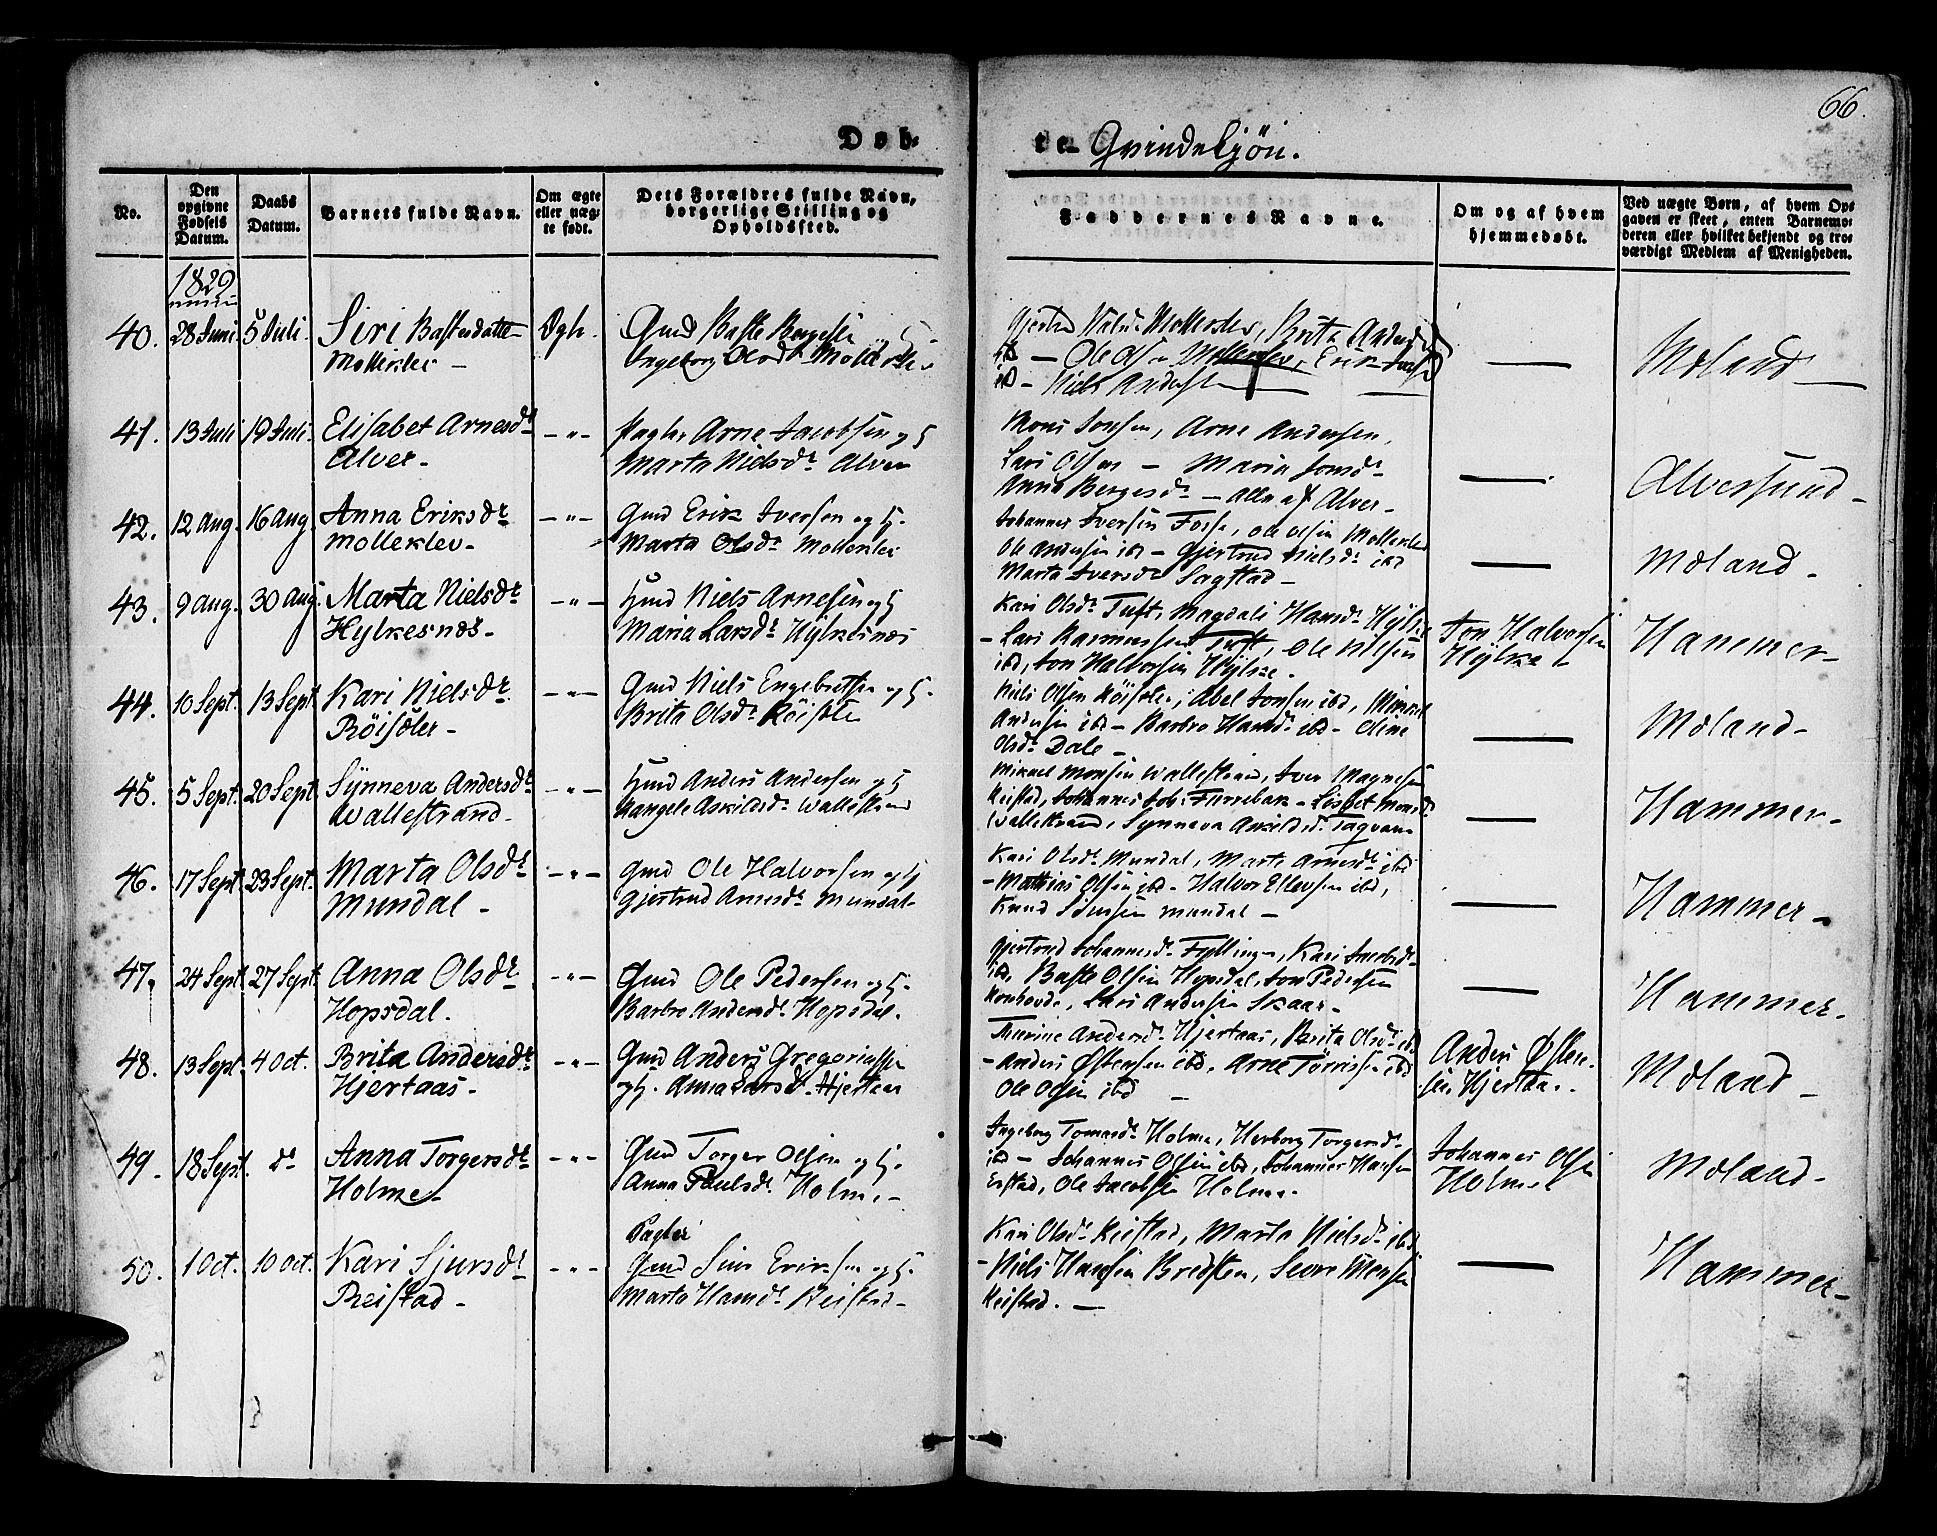 66.
Døb-
te Qvindekjøn.
No.
Den opgivne Fødsels Datum.
Daabs Datum.
Barnets fulde Navn.
Om ægte eller uægte født.
Dets Forældres fulde Navn, borgerlige Stilling og Opholdssted.
Faddernes Navne.
Om og af hvem hjemmedøbt.
Ved uægte Børn, af hvem Opgaven er skeet, enten Barnemoderen eller hvilket bekjendt og troværdigt Medlem af Menigheden.
1829
40. 28 Juni 5 Juli Siri Bastesdatte
Molleklev
Gmd Baste Børgesen
Ingeborg Olsd
Brita Andersd
ibd — Ole Olsen Molleklev, Erik
ibd — Niels Andersen
Moland
41. 13 Juli 19 Juli Elisabet Arnesdr
Alver -
-"- Arne Jacobsen og H
Marta Nielsdr Alver
Mons Jonsen, Arne Andersen,
Lars Olsen — Maria Jonsdr
Anna Børgesdr — alle af Alver -
Alversund -
42. 12 Aug. 16 Aug. Anna Eriksdr
Molleklev -
-"- Gmd Erik Iversen og H.
Marta Olsdr Molleklev
Johannes Iversen Fosse, Ole Olsen Molleklev
Ole Andersen ibd — Gjertrud Nielsdr ibd
Marta Iversdr Sagstad -
Moland -
43. 9 Aug. 30 Aug. Marta Nielsdr
Hylkesnes -
-"- Hmd Niels Arnesen og H
Maria Larsdr Hylkesnes
Kari Olsdr Tuft, Magdali Hansdr Hylke
- Lars Rasmussen Tuft, Ole Nilsen
ibd, Jon Halvorsen Hylke.
Jon Halvorsen
Hylke
Hammer -
44. 10 Sept. 13 Sept Kari Nielsdr
Røisdler -
-"- Gmd Niels Engebretsen og H.
Brita Olsdr Røisdler
Niels Olsen Røisdler, Abel Jonsen ibd, Mikkel
Andersen ibd — Barbro Hansdr ibd — Oline
Olsdr Dale -
Moland -
45. 5 Sept. 20 Sept. Synneva Andersdr
Wallestrand -
-"- Hmd Anders Andersen og H
Askildsdr Wallestrand
Mikael Monsen Wallestrand, Iver Magnesen
Keistad, Johannes Joh. Furrebak - Lisbet Monsd
Wallestrand, Synneva Askildsd.
Hammer -
46. 17 Sept. 23 Sept. Marta Olsdr
Mundal -
-"- Gmd Ole Halvorsen og H
Gjertrud Arnesdr Mundal
Kari Olsdr Mundal, Marta Arnesdr ibd
- Mathias Olsen ibd - Halvor Ellevsen ibd,
Knud Mundal -
Hammer -
47. 24 Sept. 27 Sept Anna Olsdr
Hopsdal.
-"- Gmd Ole Pedersen og H.
Barbro Andersdr Hopsdal.
Gjertrud Johannesdr Fylling -, Kari Jacobsdr
ibd, Baste Olsen Hopsdal, Jon Pedersen
Lars Andersen Skaar -
Hammer -
48. 13 Sept. 4 Oct. Brita Andersdr
Hjertaas -
-"- Gmd Anders Gregoriussen
og H. Anna Larsdr Hjertaas
Andersdr Hjertaas, Brita Olsdr ibd
- Anders Østensen ibd, Arne Tørrissen ibd
Ole Olsen ibd —
Anders Østen-
sen Hjertaas -
Moland -
49. 18 Sept. do Anna Torgersdr
Holme -
-"- Gmd Torger Olsen og H.
Anna Paulsdr Holme -
Ingeborg Tomasdr Holme, Herborg Torgersdr
ibd — Johannes Olsen ibd, Johannes Hansen
Ole Jacobsen Holme -
Johannes Olsen
Holme
Moland -
50. 1 Oct. 10 Oct. Kari Sjursdr
Reistad -
-"- Gmd Eriksen og H.
Marta Hansdr Reistad -
Kari Olsdr Reistad, Marta Nielsdr ibd
- Niels Hansen Bredsten, Monsen
Reistad. —
Hammer -